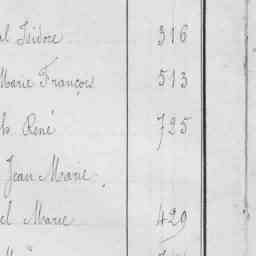 al Isidore 316
Marie François 513
h. René 725
Jean Marie
el Marie 429